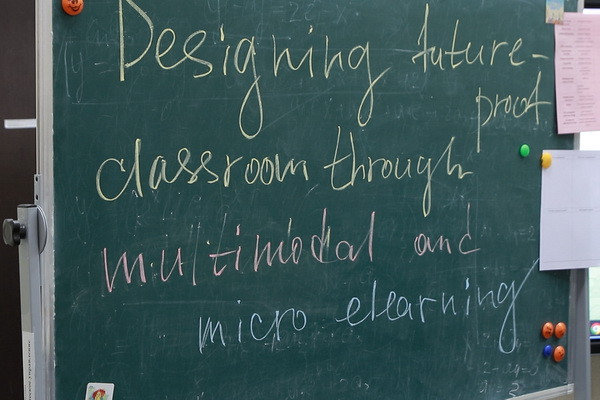 Designing future-
proof
classroom through
multimodal and
micro elearning